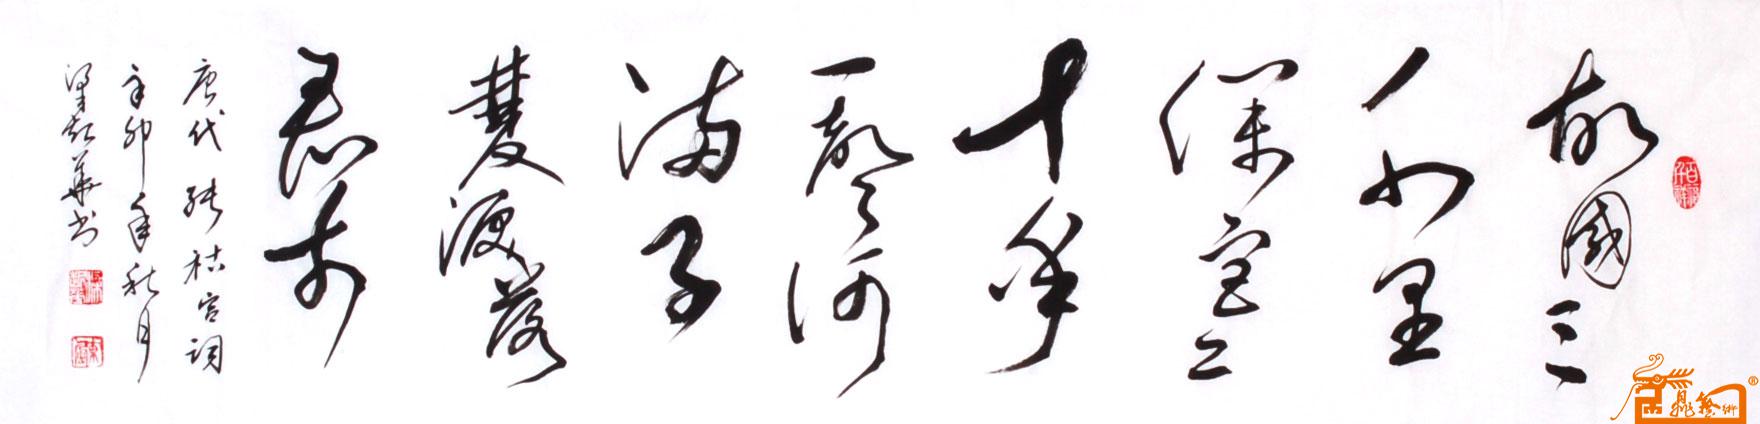 百福千祥
故國三
千里
深宮二
十年
一聲何
滿子
雙淚落
君前
唐代張祜宮詞
辛卯年秋月
梁華書